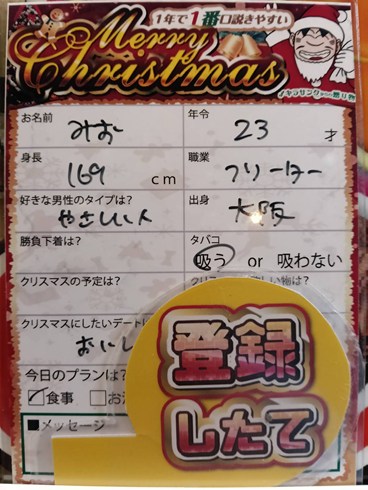 1年で1番口説きやすい
Merry
Christmas
お名前 みお 年令 23 才
身長 169 cm 職業 フリーター
好きな男性のタイプは? やさしい人 出身 大阪
勝負下着は? タバコ 吸う or 吸わない
クリスマスの予定は?
クリスマスにしたいデート
おにし
今日のプランは?
食事 お
■メッセージ
登録
したて